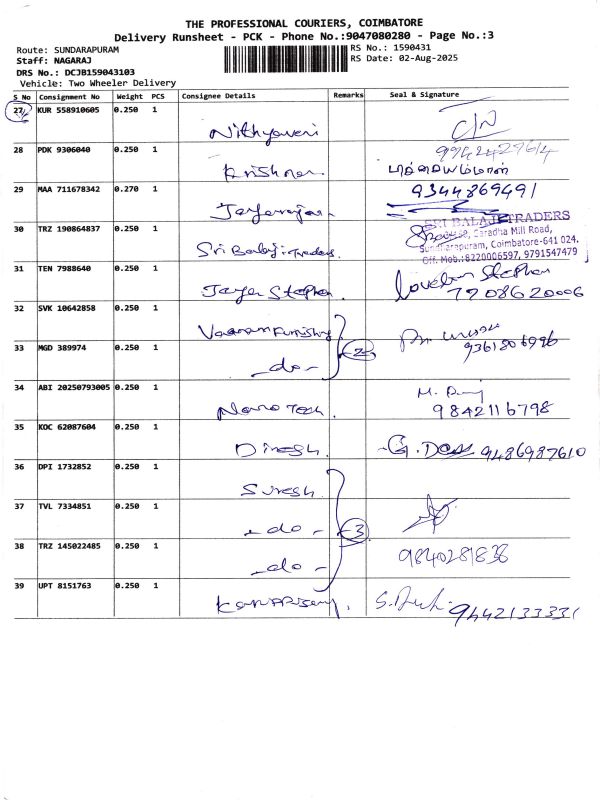 THE PROFESSIONAL COURIERS, COIMBATORE
Delivery Runsheet - PCK - Phone No.:9047080280 - Page No.:3
Route: SUNDARAPURAM
RS No.: 1590431
Staff: NAGARAJ
RS Date: 02-Aug-2025
DRS No.: DCJB159043103
Vehicle: Two Wheeler Delivery
S No Consignment No Weight PCS Consignee Details Remarks Seal & Signature
27 KUR 558910605 0.250 1
28 PDK 9306040 0.250 1
Krishnan
29 MAA 711678342 0.270 1 9344869491
30 TRZ 190864837 0.250 1
SRI BALAJI TRADERS
Saradha Mill Road,
Sundarapuram, Coimbatore-641 024.
Off. Mob.:8220006597, 9791547479
Sri Balaji Traders.
31 TEN 7988640 0.250 1
Stephen
Jaya Stephen. 7708620006
32 SVK 10642858 0.250 1
2
9361806996
33 MGD 389974 0.250 1
-do-
34 ABI 20250793005 0.250 1
Nano Tech. 9842116798
35 KOC 62087604 0.250 1
Dinesh. G. Doss 9486987610
36 DPI 1732852 0.250 1
Suresh.
37 TVL 7334851 0.250 1
-do- 3
38 TRZ 145022485 0.250 1
-do- 9840281838
39 UPT 8151763 0.250 1
9442133331